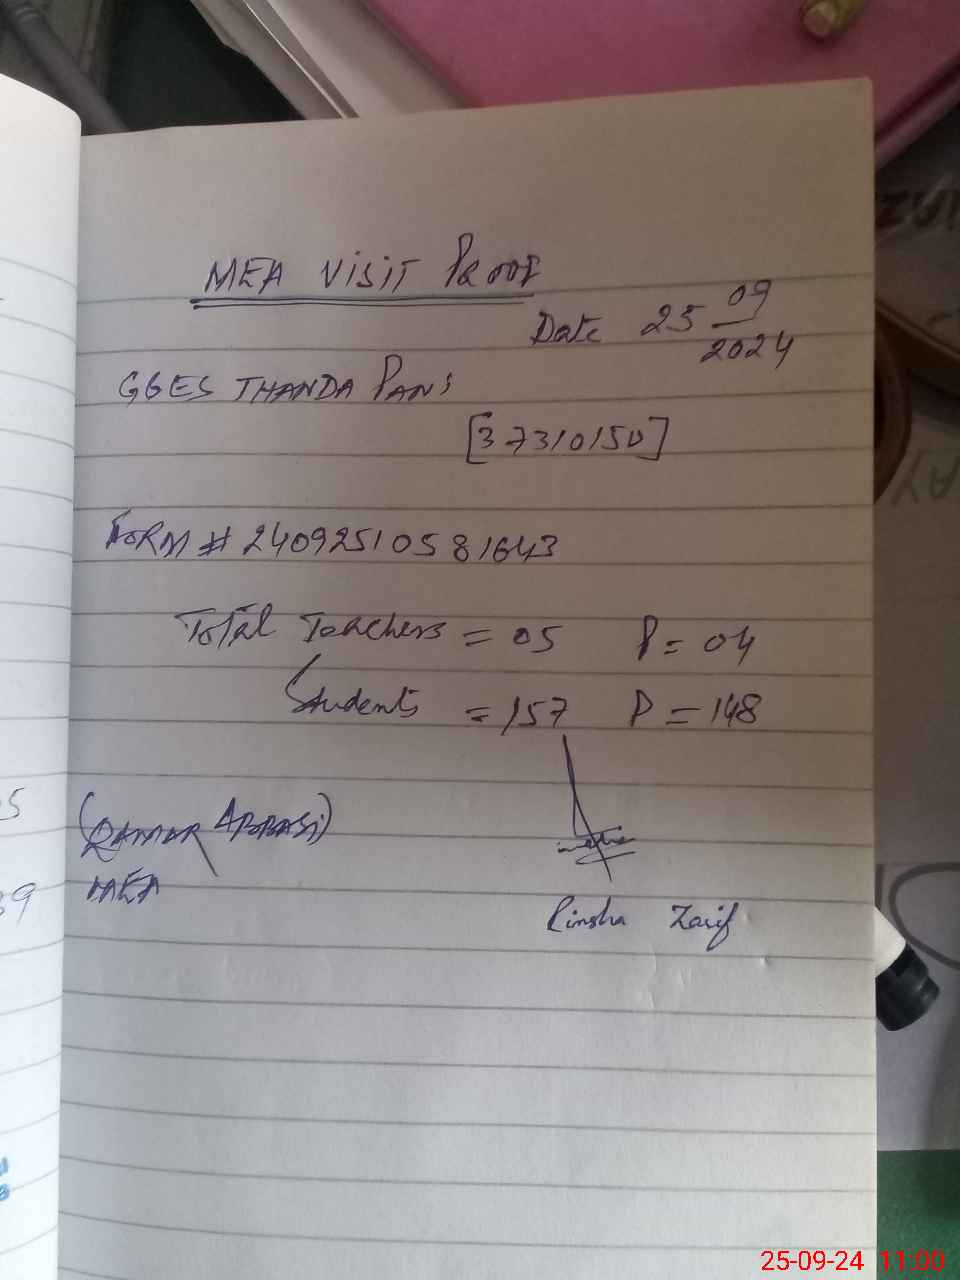 MEA VISIT PROOF
Date 25 09/2024
GGES THANDA PANi
[37310150]
FORM # 24092510581643
Total Teachers = 05 P = 04
Students = 157 P = 148
(QAMAR ABBASi)
MEA
Rinsha Zarif
5
39
25-09-24 11:00